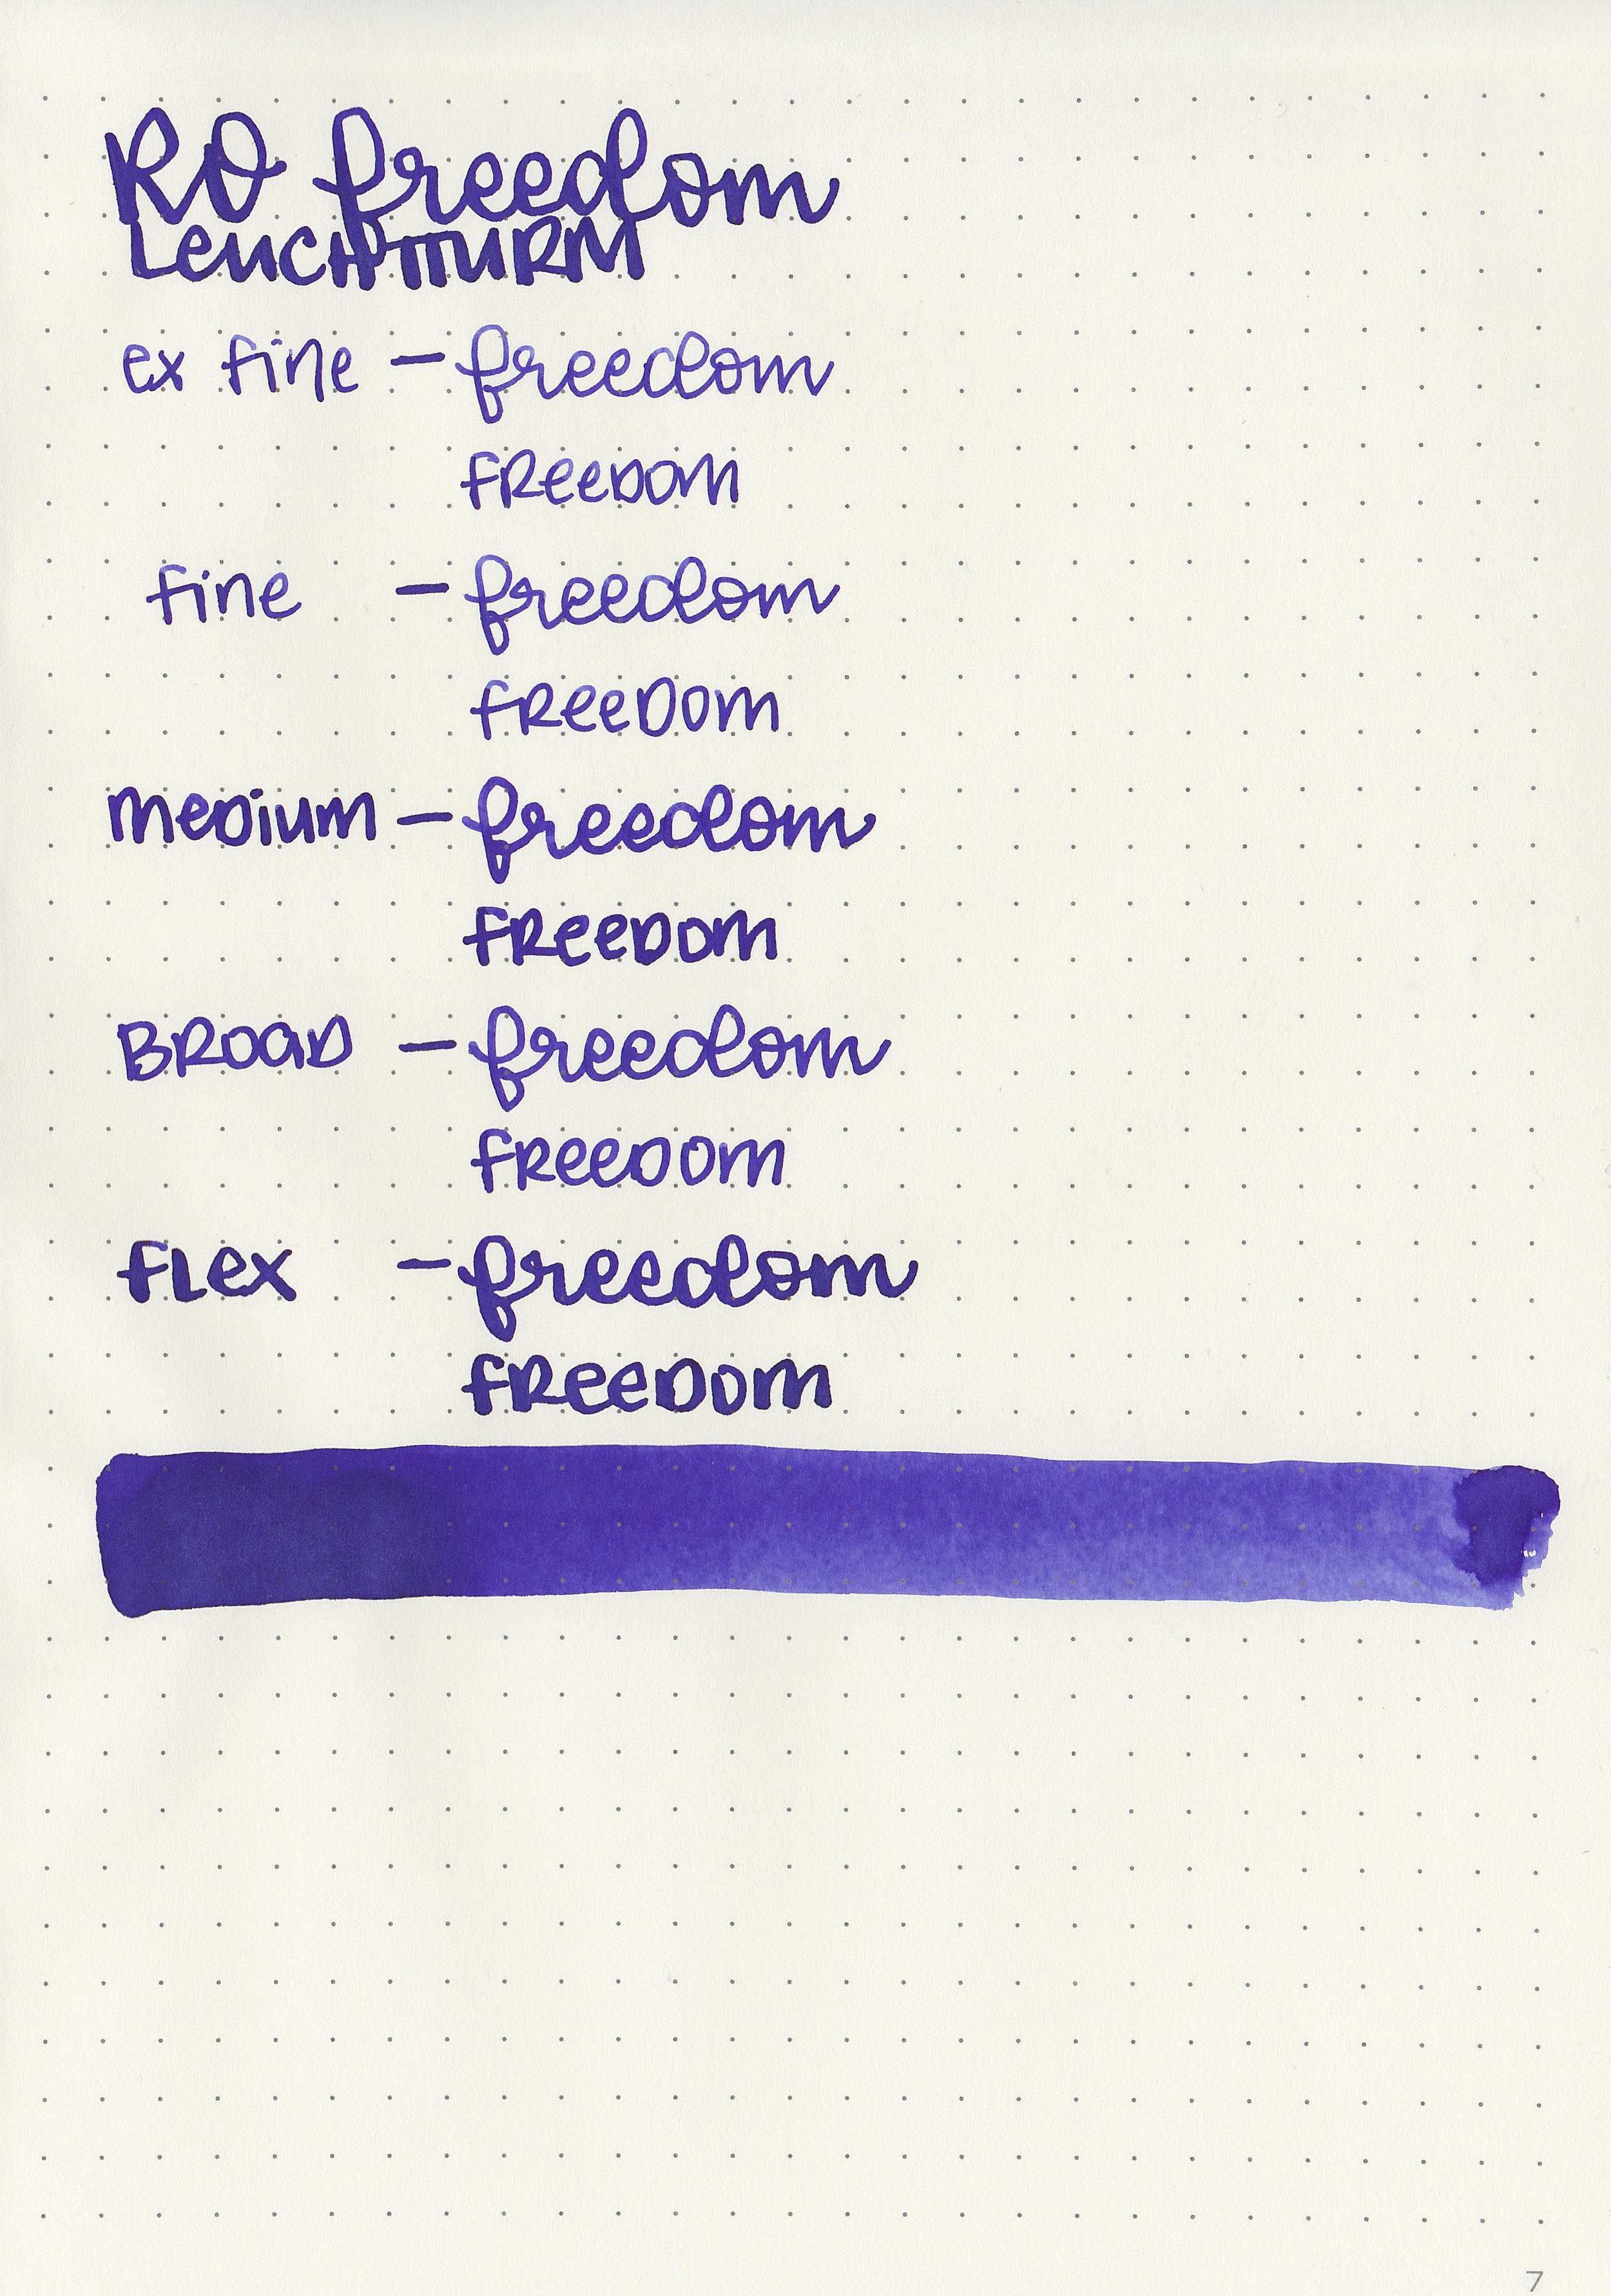 RO freedom
LEUCHTTURM
ex fine — freedom
FREEDOM
fine — freedom
FREEDOM
MEDIUM — freedom
FREEDOM
BROAD — freedom
FREEDOM
FLEX — freedom
FREEDOM
7